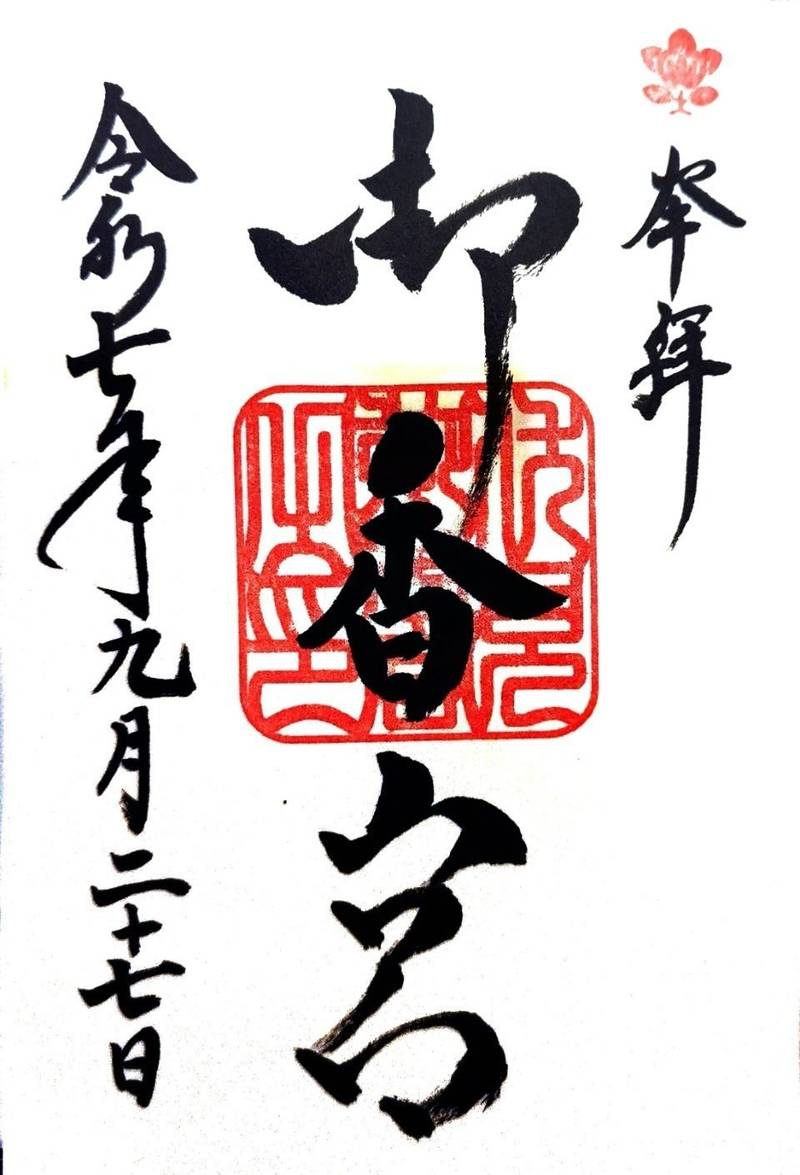 奉拝
御香宮
令和七年九月二十七日